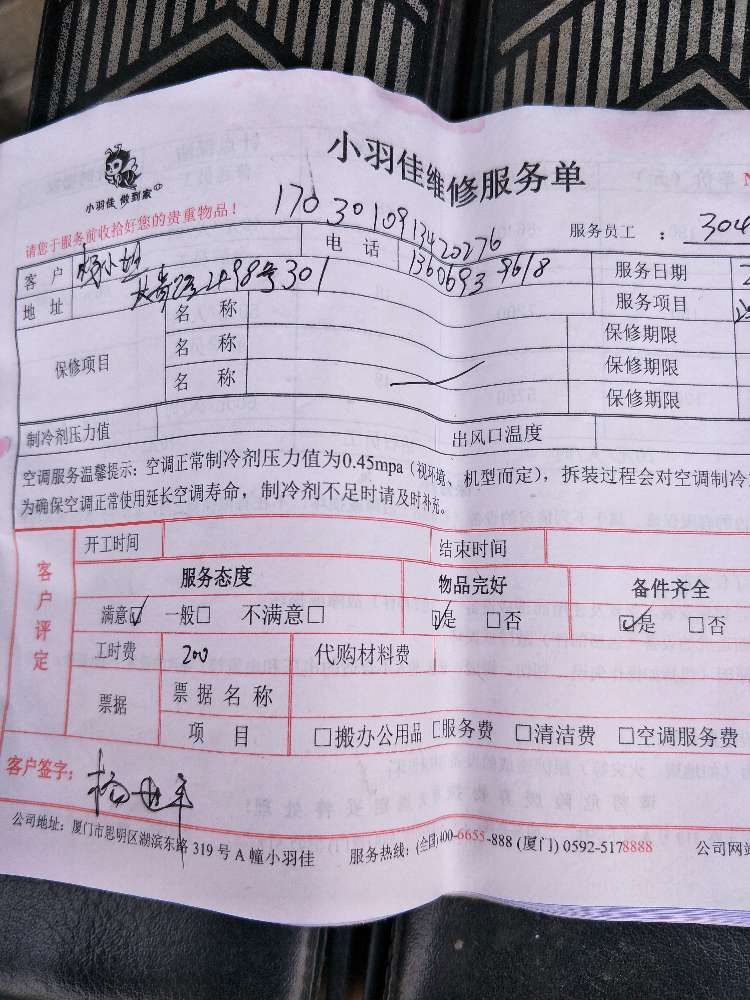 小羽佳维修服务单
小羽佳 做到家
请您于服务前收拾好您的贵重物品！
1703010913420276
服务员工 ： 304
客 户 杨小姐 电 话 13606939618 服务日期
地 址 2498号301 服务项目
保修项目 名 称 保修期限
名 称 保修期限
名 称 保修期限
制冷剂压力值 出风口温度
空调服务温馨提示：空调正常制冷剂压力值为0.45mpa（视环境、机型而定），拆装过程会对空调制冷
为确保空调正常使用延长空调寿命，制冷剂不足时请及时补充。
客户评定
开工时间 结束时间
服务态度 物品完好 备件齐全
满意☑ 一般□ 不满意□ ☑是 □否 ☑是 □否
工时费 200 代购材料费
票据 票据名称
项 目 □搬办公用品 □服务费 □清洁费 □空调服务费
客户签字： 杨
公司地址：厦门市思明区湖滨东路 319 号 A 幢小羽佳 服务热线：(全国)400-6655-888 (厦门) 0592-5178888 公司网